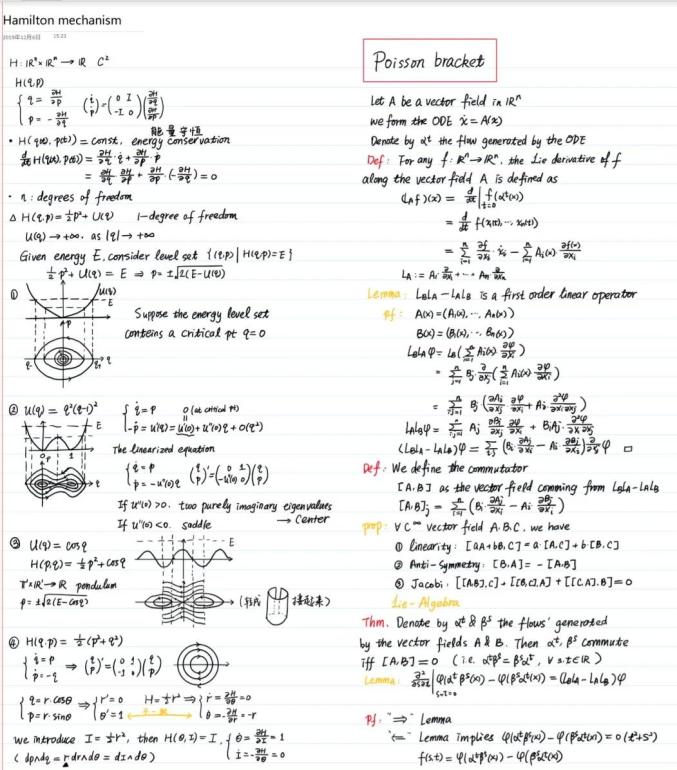 Hamilton mechanism
2019年12月6日 15:23
H: ℝⁿ × ℝⁿ → ℝ C²
H(q,p)
{ q̇ = ∂H/∂p
ṗ = - ∂H/∂q
(q̇ ṗ) = (0 I -I 0) (∂H/∂q ∂H/∂p)
能量守恒
· H(q(t), p(t)) = const, energy conservation
d/dt H(q(t), p(t)) = ∂H/∂q · q̇ + ∂H/∂p · ṗ
= ∂H/∂q · ∂H/∂p + ∂H/∂p · (-∂H/∂q) = 0
· n: degrees of freedom
△ H(q,p) = ½p² + U(q) 1-degree of freedom
U(q) → +∞, as |q| → +∞
Given energy E, consider level set {(q,p) | H(q,p)=E}
½p² + U(q) = E ⇒ p = ±√2(E-U(q))
①
U(q)
E
Suppose the energy level set
conteins a critical pt q=0
② U(q) = q²(q-1)²
E
0 1
{ q̇ = p 0 (at critical pt)
-ṗ = U'(q) = U'(0) + U''(0)q + O(q²)
The linearized equation
{ q̇ = p
ṗ = -U''(0)q
(q p)' = (0 1 -U''(0) 0) (q p)
If U''(0) > 0, two purely imaginary eigenvalues
→ Center
If U''(0) < 0, saddle
③ U(q) = cos q
H(p,q) = ½p² + cos q
T¹ × ℝ¹ → ℝ pendulum
p = ±√2(E - cos q)
E
接起来)
④ H(q,p) = ½(p²+q²)
{ q̇ = p
ṗ = -q
⇒ (q p)' = (0 1 -1 0) (q p)
{ q = r cosθ
p = r sinθ
⇒ { r' = 0
θ' = 1
H = ½r² ⇒ { ṙ = ∂H/∂θ = 0
θ̇ = -∂H/∂r = -r
We introduce I = ½r², then H(θ,I) = I, { θ̇ = ∂H/∂I = 1
İ = -∂H/∂θ = 0
(dp∧dq = r dr∧dθ = dI∧dθ)
Poisson bracket
Let A be a vector field in ℝⁿ
we form the ODE ẋ = A(x)
Denote by αᵗ the flow generated by the ODE
Def: For any f: ℝⁿ → ℝⁿ, the Lie derivative of f
along the vector field A is defined as
(L_A f)(x) = d/dt |_{t=0} f(αᵗ(x))
= d/dt f(x₁(t), ..., xₙ(t))
= Σ ∂f/∂xᵢ · ẋᵢ - Σ Aᵢ(x) ∂f(x)/∂xᵢ
L_A := A₁ ∂/∂x₁ + ... + Aₙ ∂/∂xₙ
Lemma: L_B L_A - L_A L_B is a first order linear operator
Pf: A(x) = (A₁(x), ..., Aₙ(x))
B(x) = (B₁(x), ... Bₙ(x))
L_B L_A φ = L_B (Σ Aᵢ(x) ∂φ/∂xᵢ)
= Σ Bⱼ ∂/∂xⱼ (Σ Aᵢ(x) ∂φ/∂xᵢ)
= Σ Bⱼ (∂Aᵢ/∂xⱼ ∂φ/∂xᵢ + Aᵢ ∂²φ/∂xᵢ∂xⱼ)
L_A L_B φ = Σ Aⱼ ∂Bᵢ/∂xⱼ ∂φ/∂xᵢ + BᵢAⱼ ∂²φ/∂xᵢ∂xⱼ
(L_B L_A - L_A L_B)φ = Σ (Bᵢ ∂Aⱼ/∂xᵢ - Aᵢ ∂Bⱼ/∂xᵢ) ∂/∂xⱼ φ □
Def: We define the commutator
[A,B] as the vector field comming from L_B L_A - L_A L_B
[A,B]ⱼ = Σ (Bᵢ ∂Aⱼ/∂xᵢ - Aᵢ ∂Bⱼ/∂xᵢ)
prop: ∀ C^∞ vector field A, B, C, we have
① linearity: [aA+bB, C] = a·[A,C] + b·[B,C]
② Anti-symmetry: [B,A] = -[A,B]
③ Jacobi: [[A,B],C] + [[B,C],A] + [[C,A],B] = 0
Lie-Algebra
Thm. Denote by αᵗ & βˢ the flows' generated
by the vector fields A & B. Then αᵗ, βˢ commute
iff [A,B] = 0 (i.e. αᵗβˢ = βˢαᵗ, ∀ s,t∈ℝ)
Lemma: ∂²/∂s∂t |_{s=t=0} φ(αᵗβˢ(x)) - φ(βˢαᵗ(x)) = (L_B L_A - L_A L_B)φ
Pf: "⇒" Lemma
"⇐" Lemma implies φ(αᵗβˢ(x)) - φ(βˢαᵗ(x)) = o(t²+s²)
f(s,t) = φ(αᵗβˢ(x)) - φ(βˢαᵗ(x))